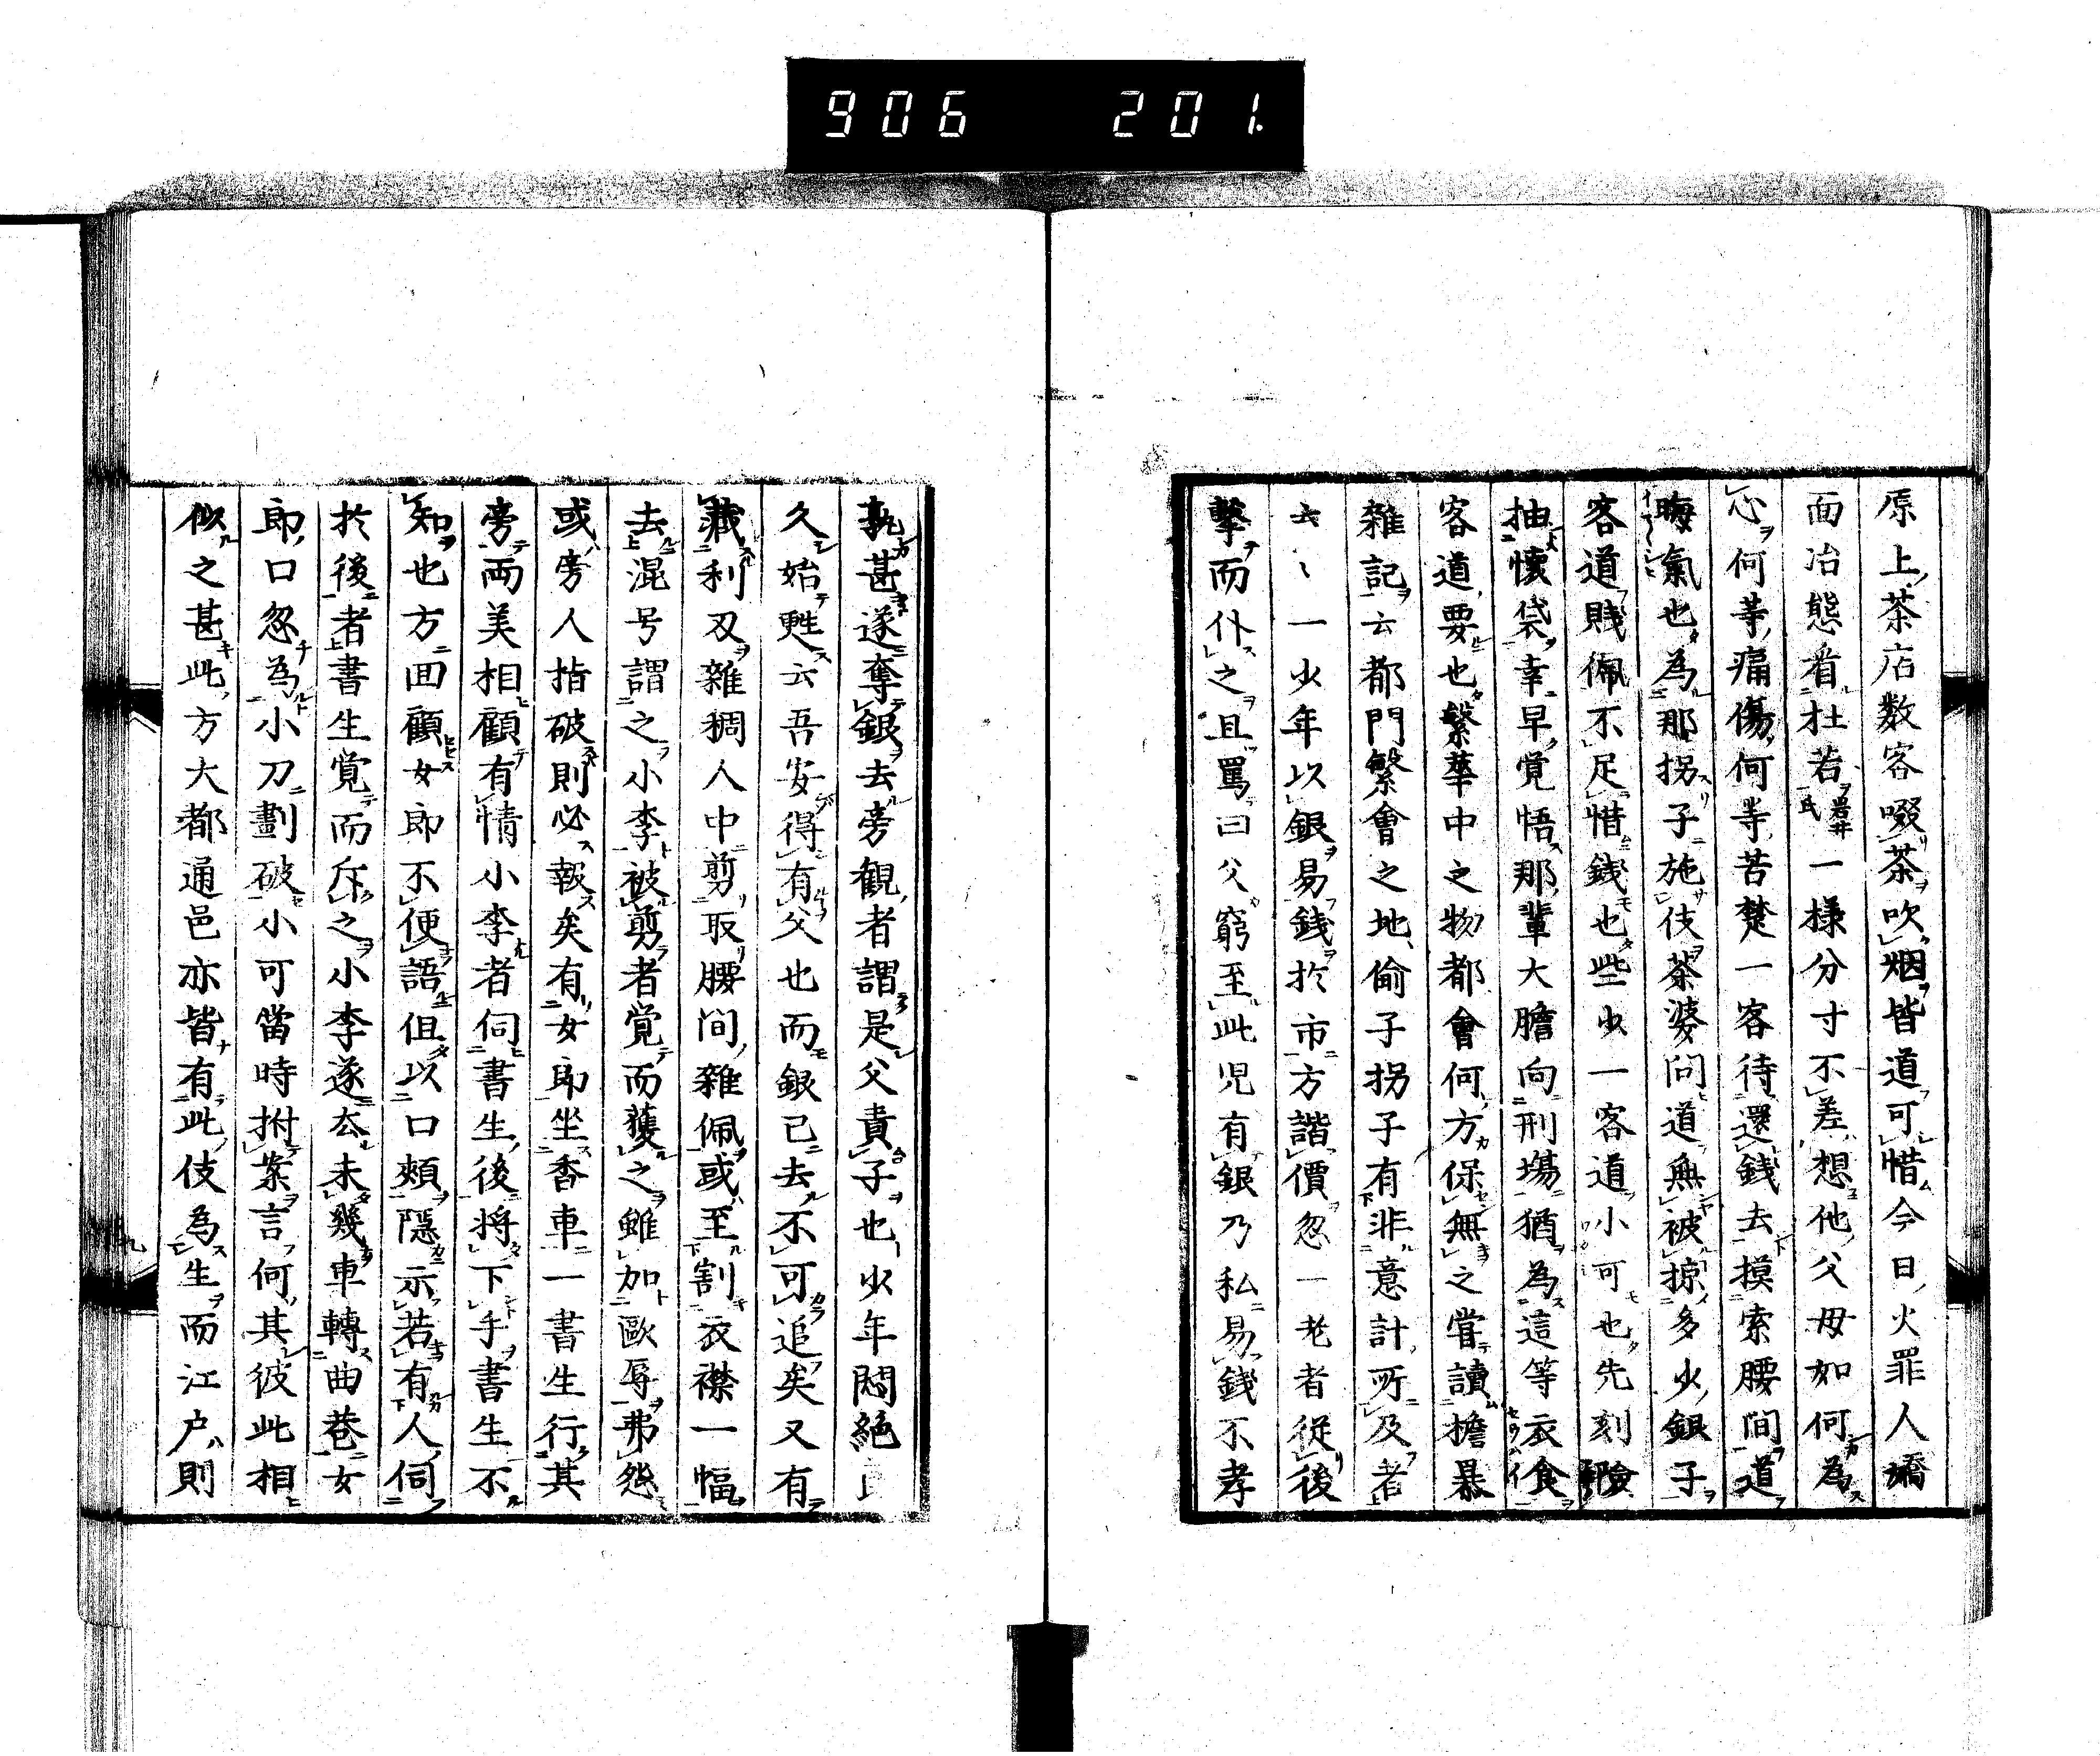 906 201.
原上茶店数客啜茶吹烟皆道可惜今日火罪人嬌
面冶態看杜若岩井氏一様分寸不差想他父母如何為
心何等痛傷何等苦楚一客待還銭去摸索腰間道
晦氣也為那拐子施伎茶婆問道無被掠多少銀子
客道賤佩不足惜銭也些少一客道小可也先刻険
抽懐袋幸早覚悟那輩大膽向刑場猶為這等衣食
客道要也繁華中之物都會何方保無之嘗讀擔暴
雜記云都門繁會之地偷子拐子有非意計所及者
云〻一少年以銀易銭於市方諧價忽一老者従後
撃而仆之且罵曰父窮至此児有銀乃私易銭不孝
孰甚遂奪銀去旁観者謂是父責子也少年悶絶良
久始甦云吾安得有父也而銀已去不可追矣又有
藏利刃雜稠人中剪取腰间雜佩或至割衣襟一幅
去混号謂之小李被剪者覚而獲之雖加歐辱弗怨
或旁人指破則必報矣有女郎坐香車一書生行其
旁両美相顧有情小李者伺書生後将下手書生不
知也方囬顧女郎不便語但以口頰隠示若有人伺
於後者書生覚而斥之小李遂去未幾車轉曲巷女
郎口忽為小刀劃破小可當時拊案言何其彼此相
似之甚此方大都通邑亦皆有此伎為生而江户則
九